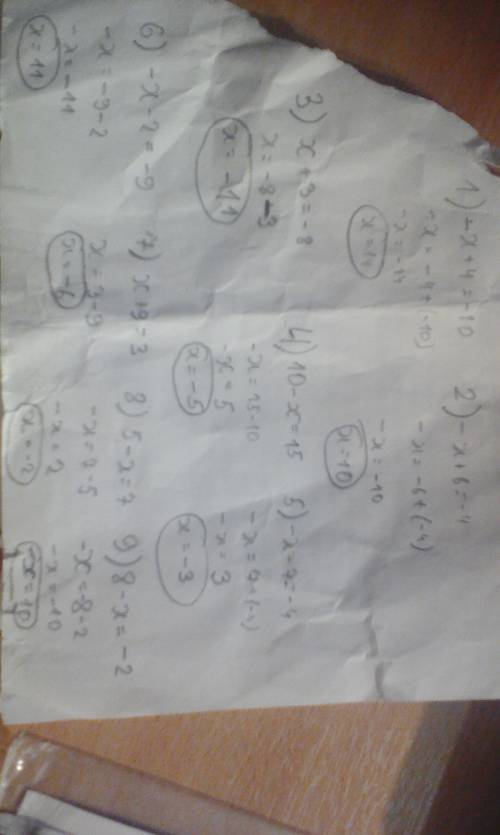 1) -x+4=-10
-x=-4+(-10)
-x=-14
x=14
2) -x+6=-4
-x=-6+(-4)
-x=-10
x=10
3) x+3=-8
x=-8-3
x=-11
4) 10-x=15
-x=15-10
-x=5
x=-5
5) -x-7=-4
-x=7+(-4)
-x=3
x=-3
6) -x-2=-9
-x=-9-2
-x=-11
x=11
7) x+9=3
x=3-9
x=-6
8) 5-x=7
-x=7-5
-x=2
x=-2
9) 8-x=-2
-x=-8-2
-x=-10
x=10